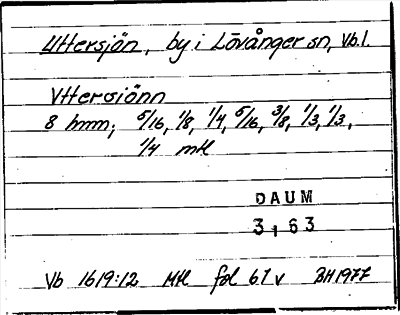 Uttersjön, by i Lövånger sn, Vb.l.
Vttersiönn
8 hmn; 5/16, 1/8, 1/4, 5/16, 3/8, 1/3, 1/3,
1/4 mtl
DAUM
3,63
Vb 1619:12 Mtl fol 61v BH1977